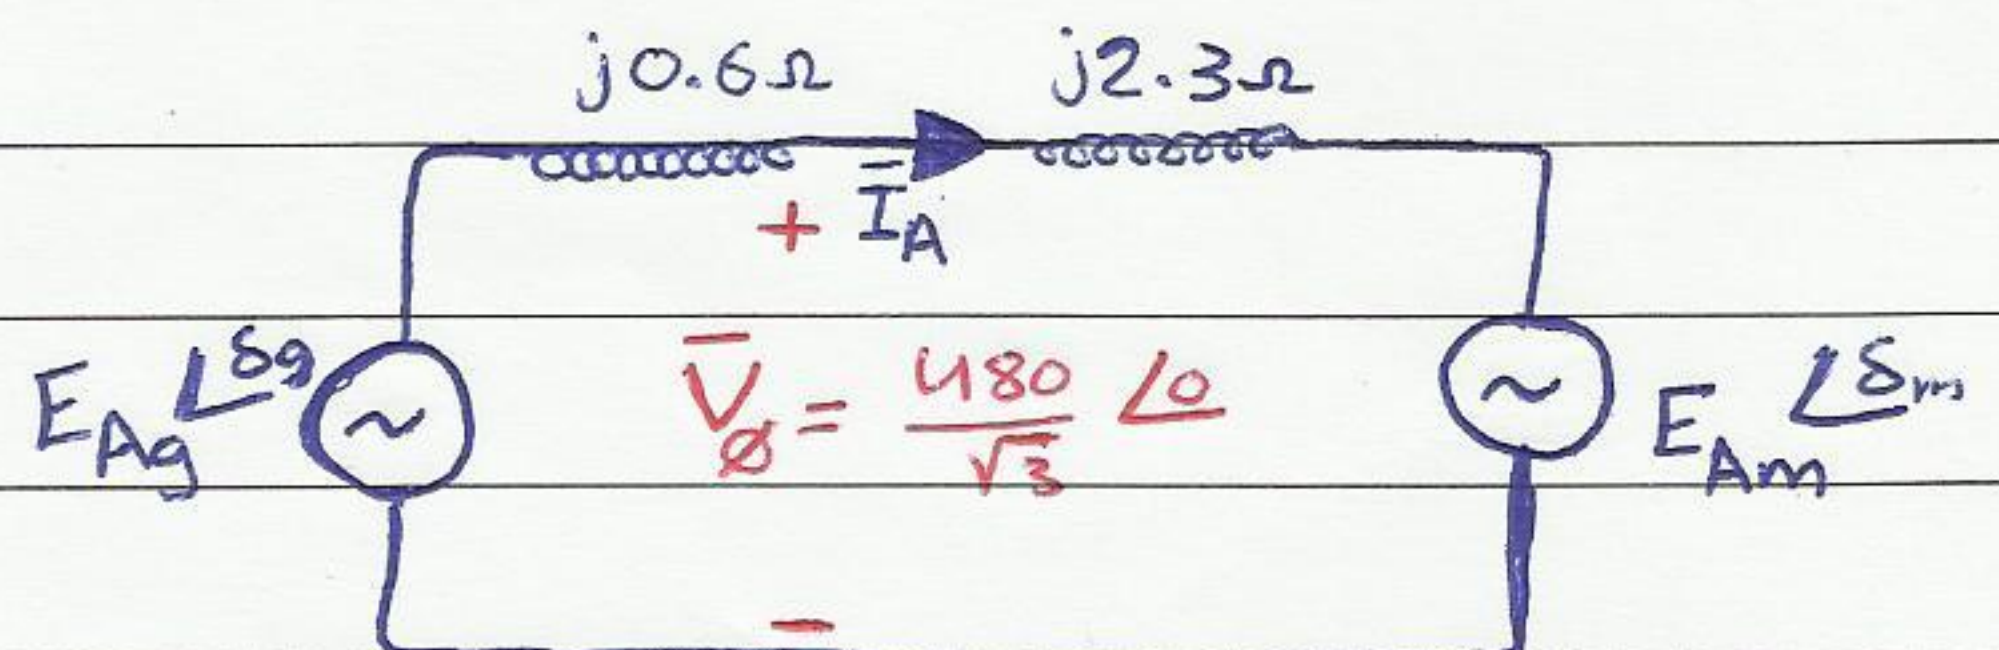 j0.6Ω j2.3Ω
+ I̅A
EAg∠δg V̅ø = 480/√3 ∠0 EAm∠δm
-